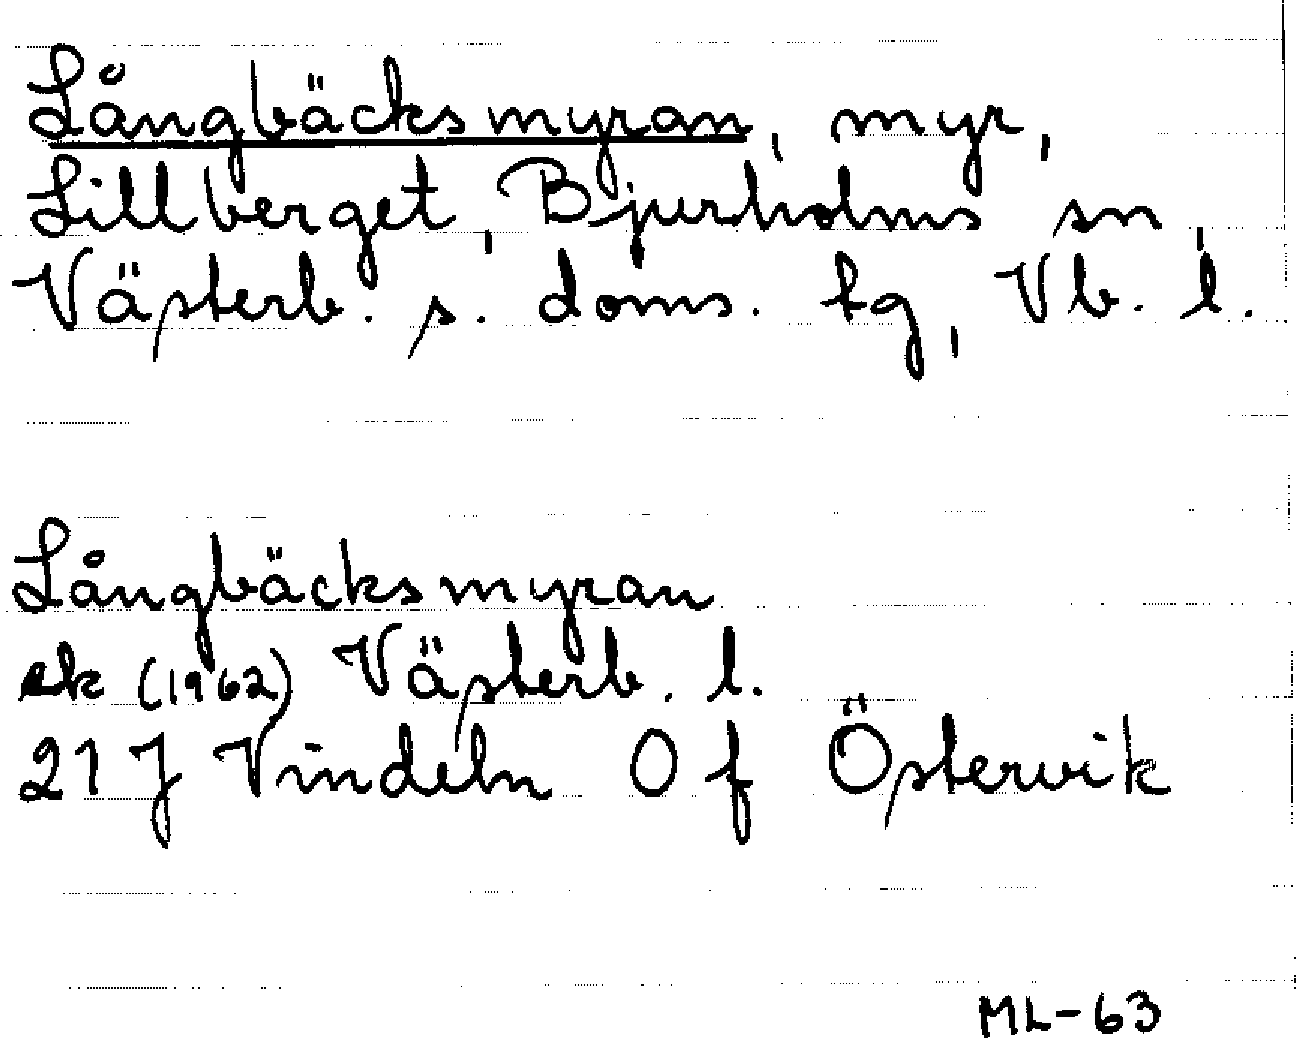 Långbäcksmyran, myr,
Lillberget, Bjurholms sn,
Västerb. s. doms. tg, Vb. l.
Långbäcksmyran
ek (1962) Västerb. l.
21 J Vindeln 0 f Östervik
ML-63